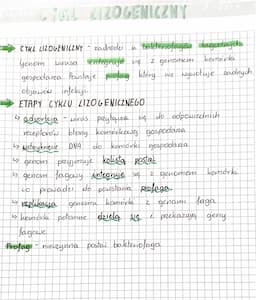 CYKL LIZOGENICZNY
→ CYKL LIZOGENICZNY - zachodzi u bakteriofagów łagodnych
Genom wirusa integruje się z genomem komórki
gospodarza. Powstaje profag, który nie wywołuje żadnych
objawów infekcji.
→ ETAPY CYKLU LIZOGENICZNEGO
↳ adsorbcja - wirus przyłącza się do odpowiednich
receptorów błony komórkowej gospodarza
↳ wstrzyknięcie DNA do komórki gospodarza
↳ genom przyjmuje kolistą postać
↳ genom fagowy integruje się z genomem komórki
co prowadzi do powstania profaga
↳ replikacja genomu komórki z genomi faga
↳ komórka potomne dzielą się i przekazują geny
fagowe
Profag - nieczynna postać bakteriofaga